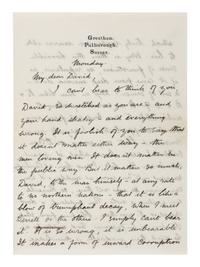 Greatham,
Pulborough,
Sussex.
Monday
My dear David,
I can't bear to think of you
David, so wretched as you are - and
your hand shaky - and everything
wrong. It is foolish of you to say that
it doesn't matter either way - the
men loving men. It doesn't matter in
the public way. But it matters so much,
David, to the man himself - at any rate
to us northern nations - that it is like a
blow of triumphant decay, when I meet
Birrell or the others. I simply can't bear
it. It is so wrong, it is unbearable.
It makes a form of inward corruption